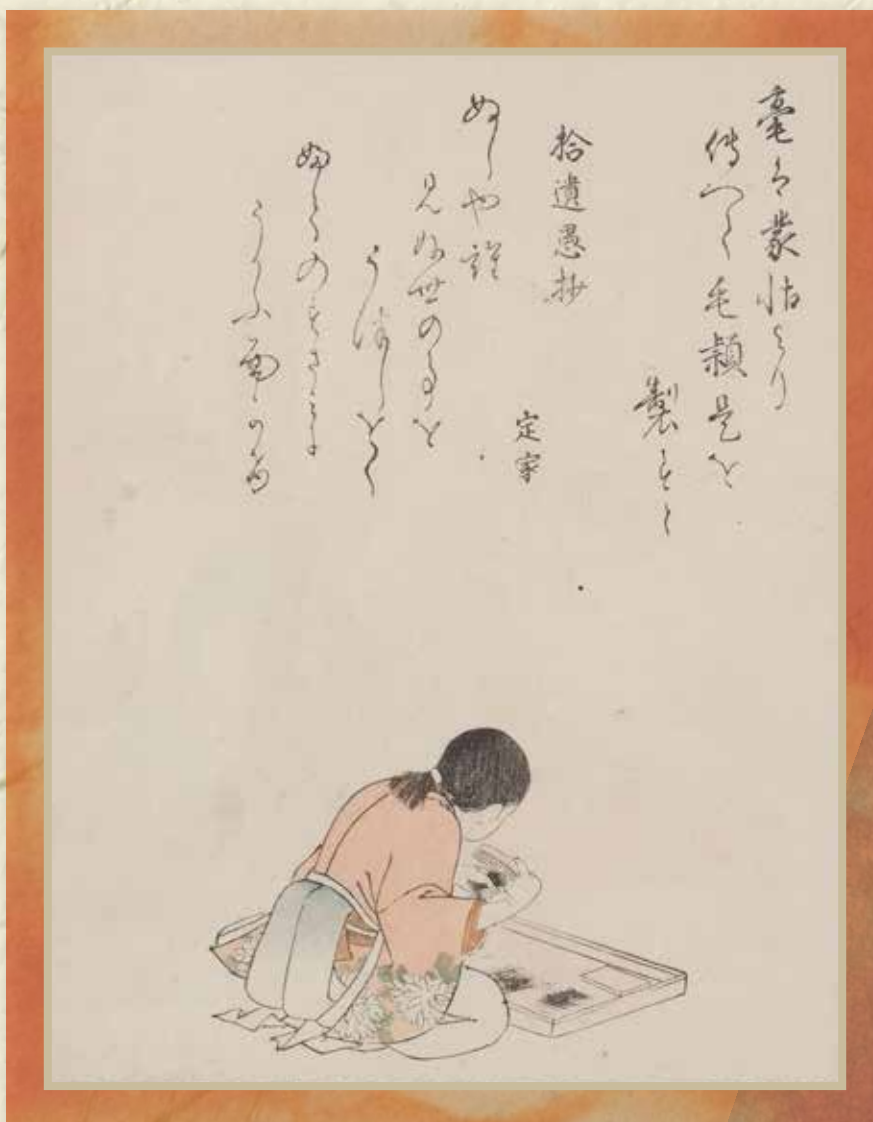 毫は蒙恬より
傳へて毛穎是を
製すと
拾遺愚抄
定家
ぬしや誰
見ぬ世の事を
うつしをく
ふてのすさみに
うかふ面かけ